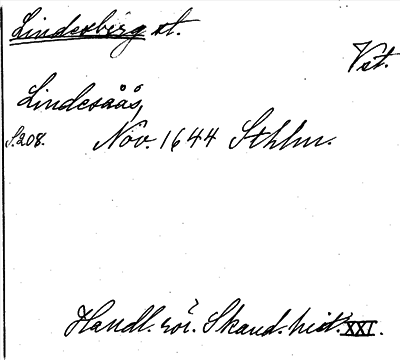 Lindesberg st.
Vst.
Lindesåås,
S. 208. Nov. 1644 Sthlm.
Handl. rör. Skand. hist. XXI.